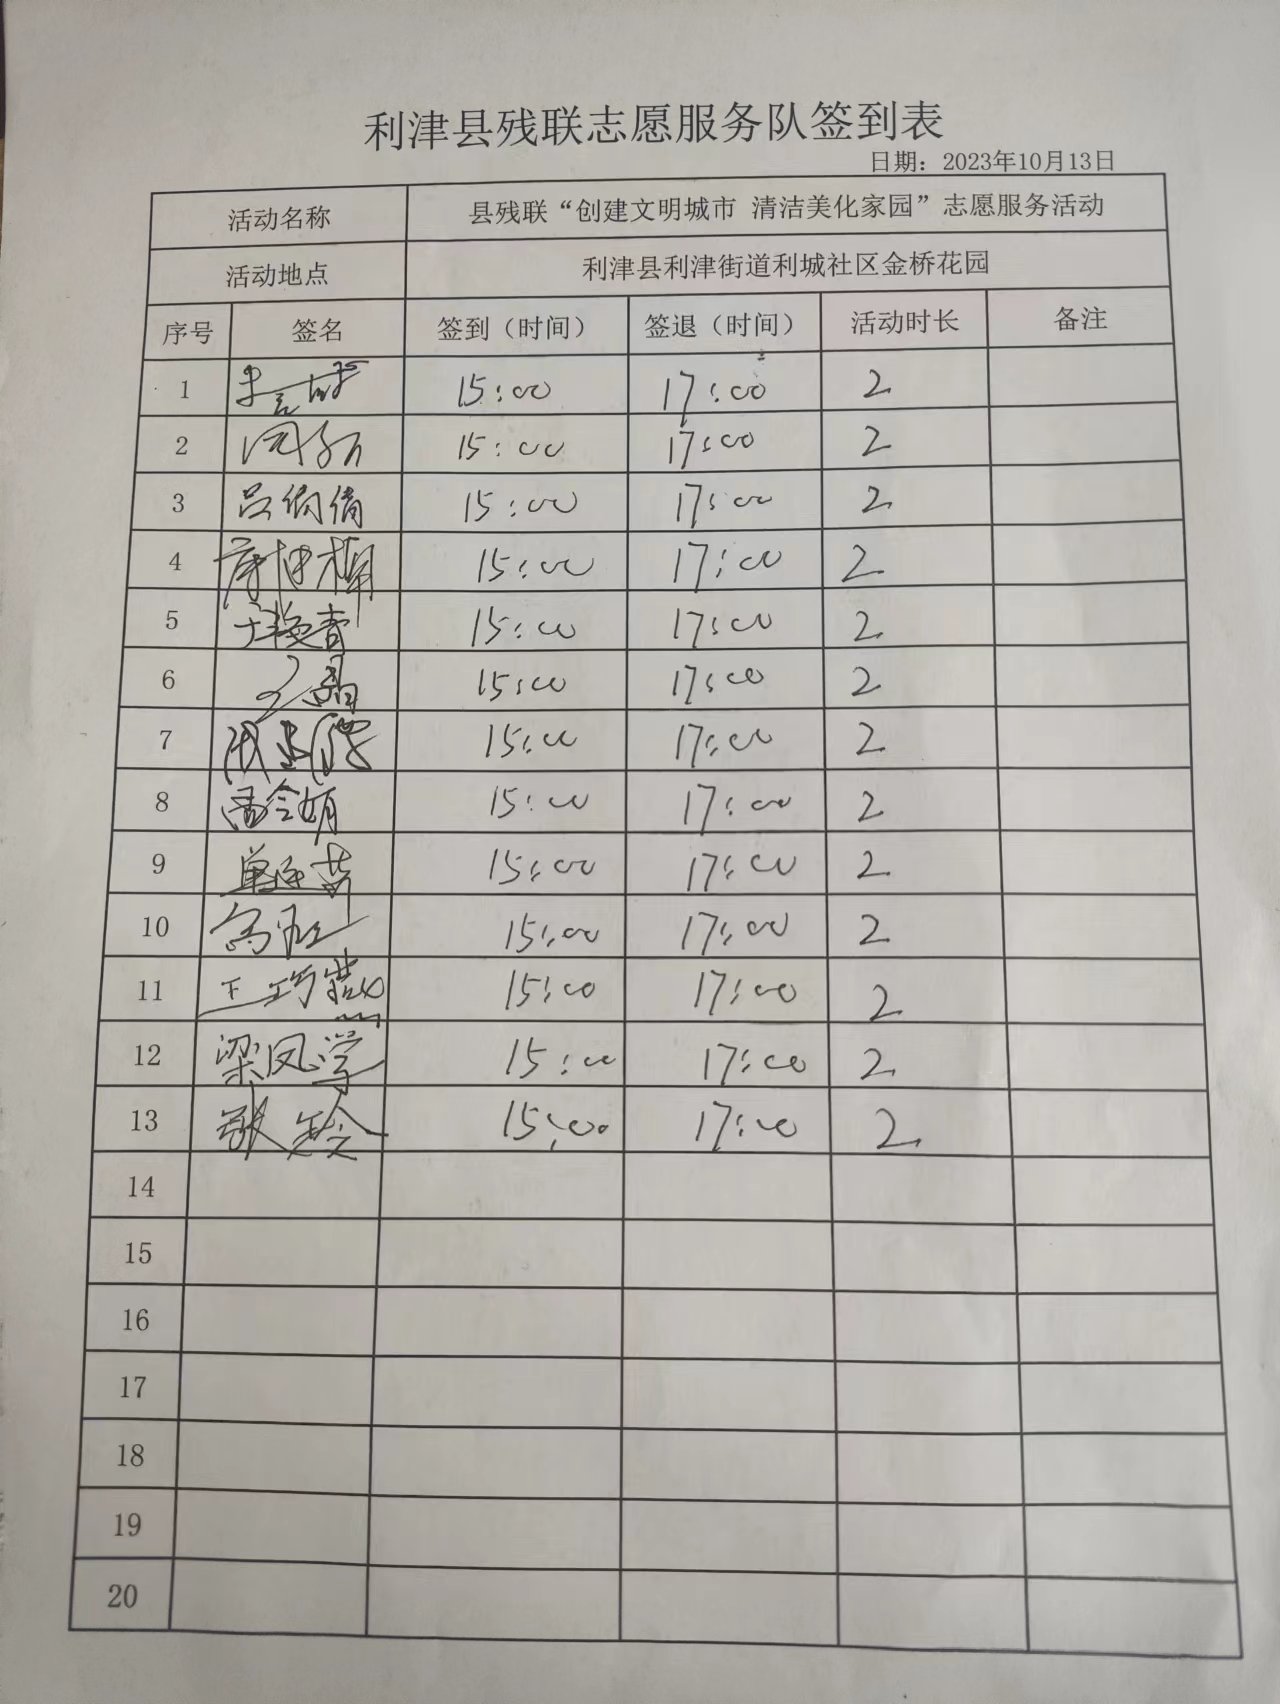 利津县残联志愿服务队签到表
日期：2023年10月13日
活动名称 县残联“创建文明城市 清洁美化家园”志愿服务活动
活动地点 利津县利津街道利城社区金桥花园
序号 签名 签到（时间） 签退（时间） 活动时长 备注
1 15:00 17:00 2
2 15:00 17:00 2
3 吕倩倩 15:00 17:00 2
4 15:00 17:00 2
5 15:00 17:00 2
6 15:00 17:00 2
7 15:00 17:00 2
8 15:00 17:00 2
9 15:00 17:00 2
10 15:00 17:00 2
11 15:00 17:00 2
12 梁凤学 15:00 17:00 2
13 15:00 17:00 2
14
15
16
17
18
19
20